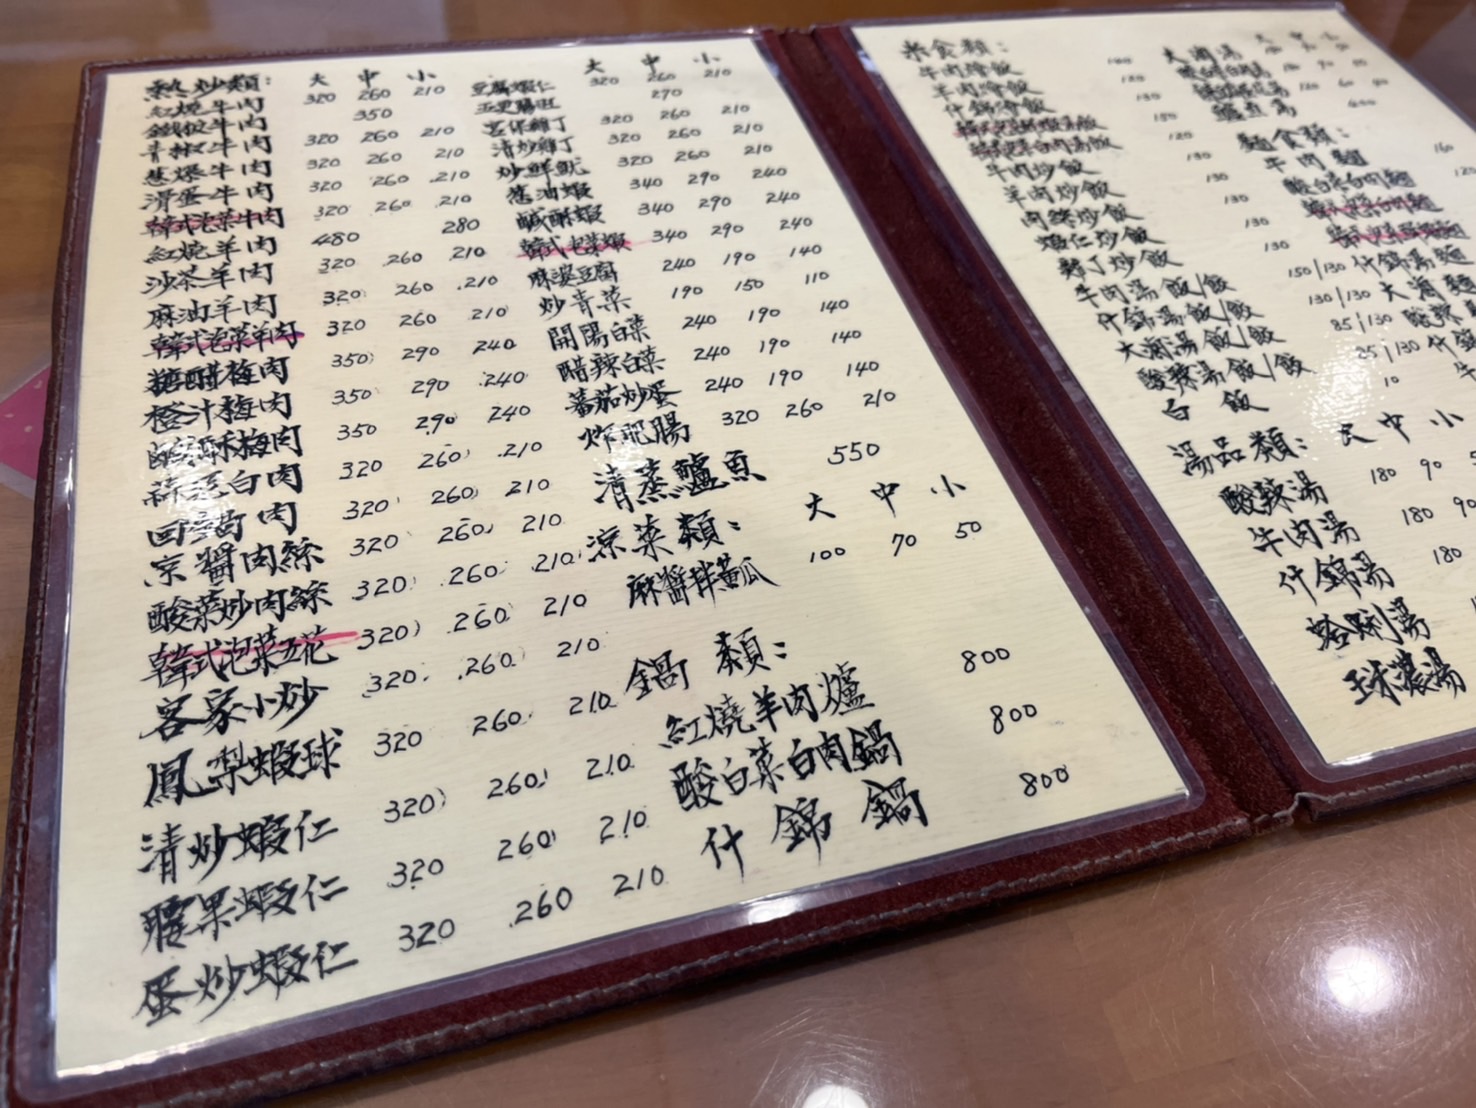 熱炒類： 大 中 小
紅燒牛肉 320 260 210
鐵板牛肉 350
青椒牛肉 320 260 210
蔥爆牛肉 320 260 210
滑蛋牛肉 320 260 210
韓式泡菜牛肉 320 260 210
紅燒羊肉 480 280
沙茶羊肉 320 260 210
麻油羊肉 320 260 210
韓式泡菜羊肉 320 260 210
糖醋梅肉 350 290 240
橙汁梅肉 350 290 240
鹹酥梅肉 350 290 240
蒜泥白肉 320 260 210
回鍋肉 320 260 210
京醬肉絲 320 260 210
酸菜炒肉絲 320 260 210
韓式泡菜五花 320 260 210
客家小炒 320 260 210
鳳梨蝦球 320 260 210
清炒蝦仁 320 260 210
腰果蝦仁 320 260 210
蛋炒蝦仁 320 260 210
大 中 小
豆腐蝦仁 320 260 210
五更腸旺 290
宮保雞丁 320 260 210
清炒雞丁 320 260 210
炒鮮魷 320 260 210
蔥油蝦 340 290 240
鹹酥蝦 340 290 240
韓式泡菜蝦 340 290 240
麻婆豆腐 240 190 140
炒青菜 190 150 110
開陽白菜 240 190 140
醋辣白菜 240 190 140
蕃茄炒蛋 240 190 140
炸肥腸 320 260 210
清蒸鱸魚 550
涼菜類： 大 中 小
麻醬拌黃瓜 100 70 50
鍋類：
紅燒羊肉爐 800
酸白菜白肉鍋 800
什錦鍋 800
米食類：
牛肉燴飯
羊肉燴飯
什錦燴飯
牛肉炒飯
羊肉炒飯
肉絲炒飯
蝦仁炒飯
雞丁炒飯
牛肉湯飯/飯 150/130
什錦湯飯/飯 130/130
大滷湯飯/飯 85/130
酸辣湯飯/飯
白飯 10
湯品類： 大 中 小
酸辣湯 180 90
牛肉湯 180 90
什錦湯 180
蛤蜊湯
大滷湯
麵食類：
牛肉麵 160
酸白菜白肉麵
什錦湯麵
大滷麵